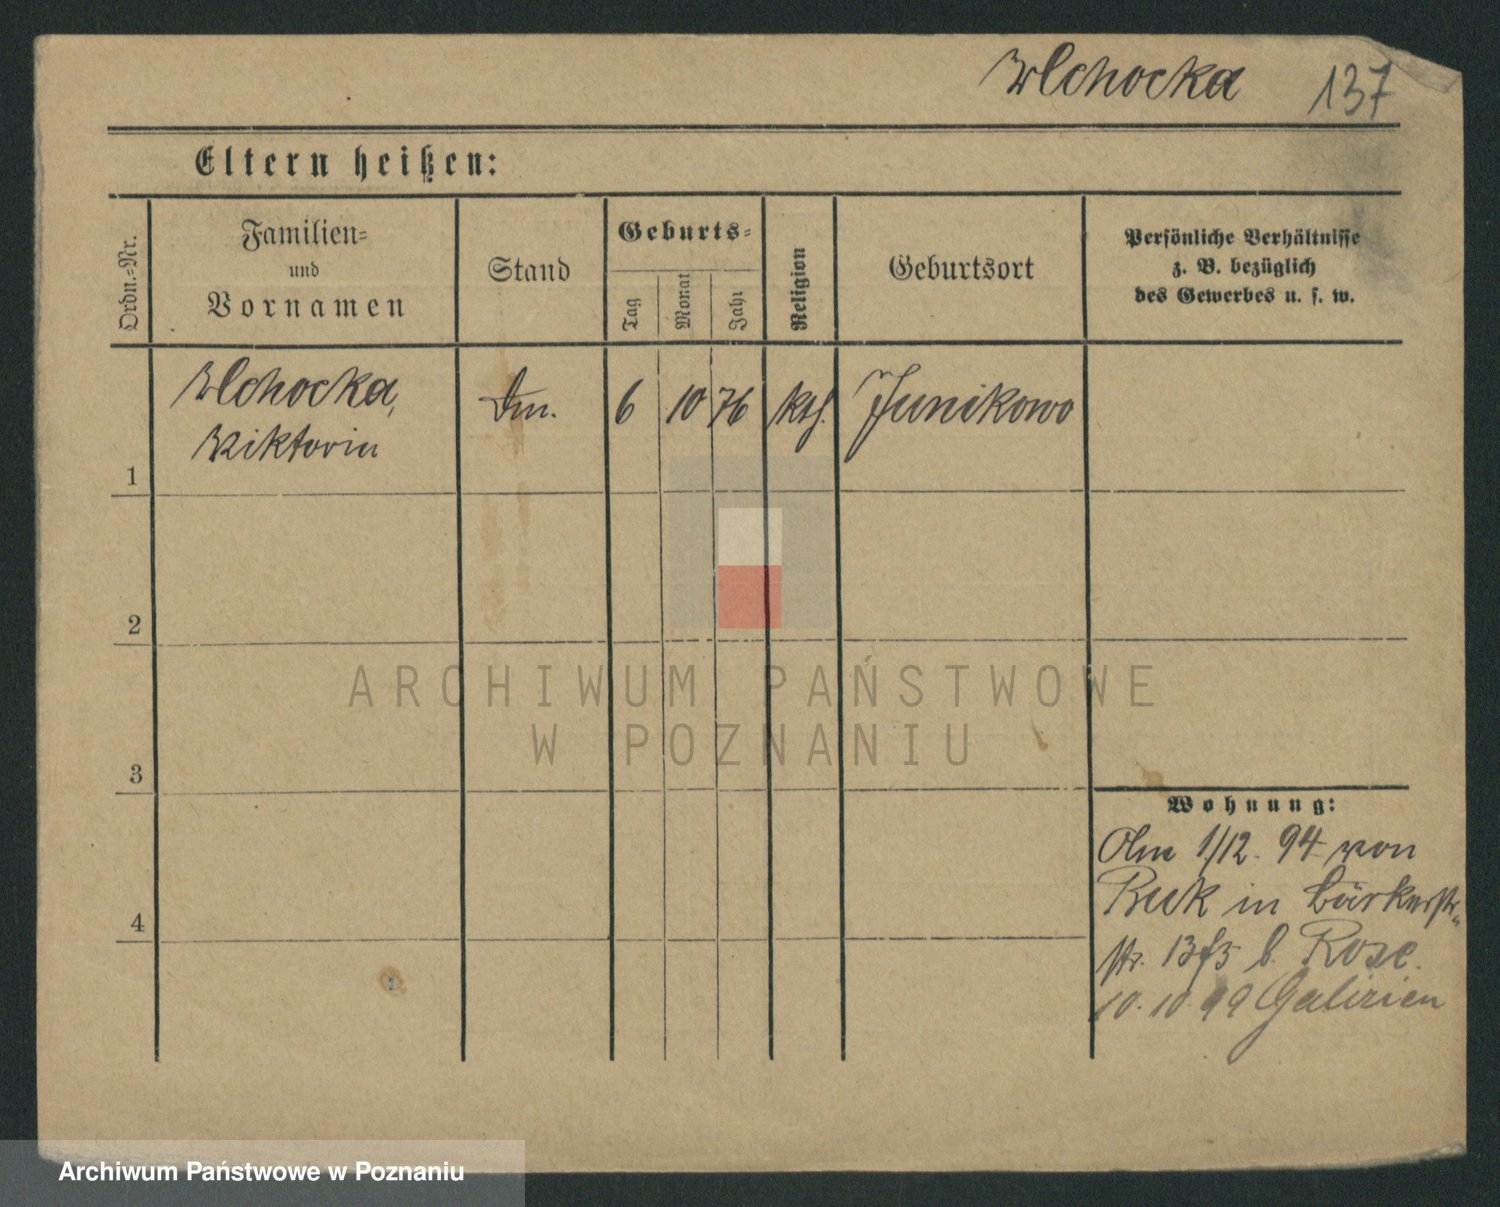 Wlchocka 137
Eltern heißen:
Ordn.-Nr.
Familien-
und
Vornamen
Stand
Geburts-
Tag
Monat
Jahr
Religion
Geburtsort
Persönliche Verhältnisse
z. B. bezüglich
des Gewerbes u. s. w.
Wlchocka,
Viktoria
6 10 76 kth. Junikowo
1
2
3
4
Wohnung:
1/12. 94 von
Buk in
str. 13 b. Rose.
10.10.99 Galizien
ARCHIWUM PAŃSTWOWE
W POZNANIU
Archiwum Państwowe w Poznaniu